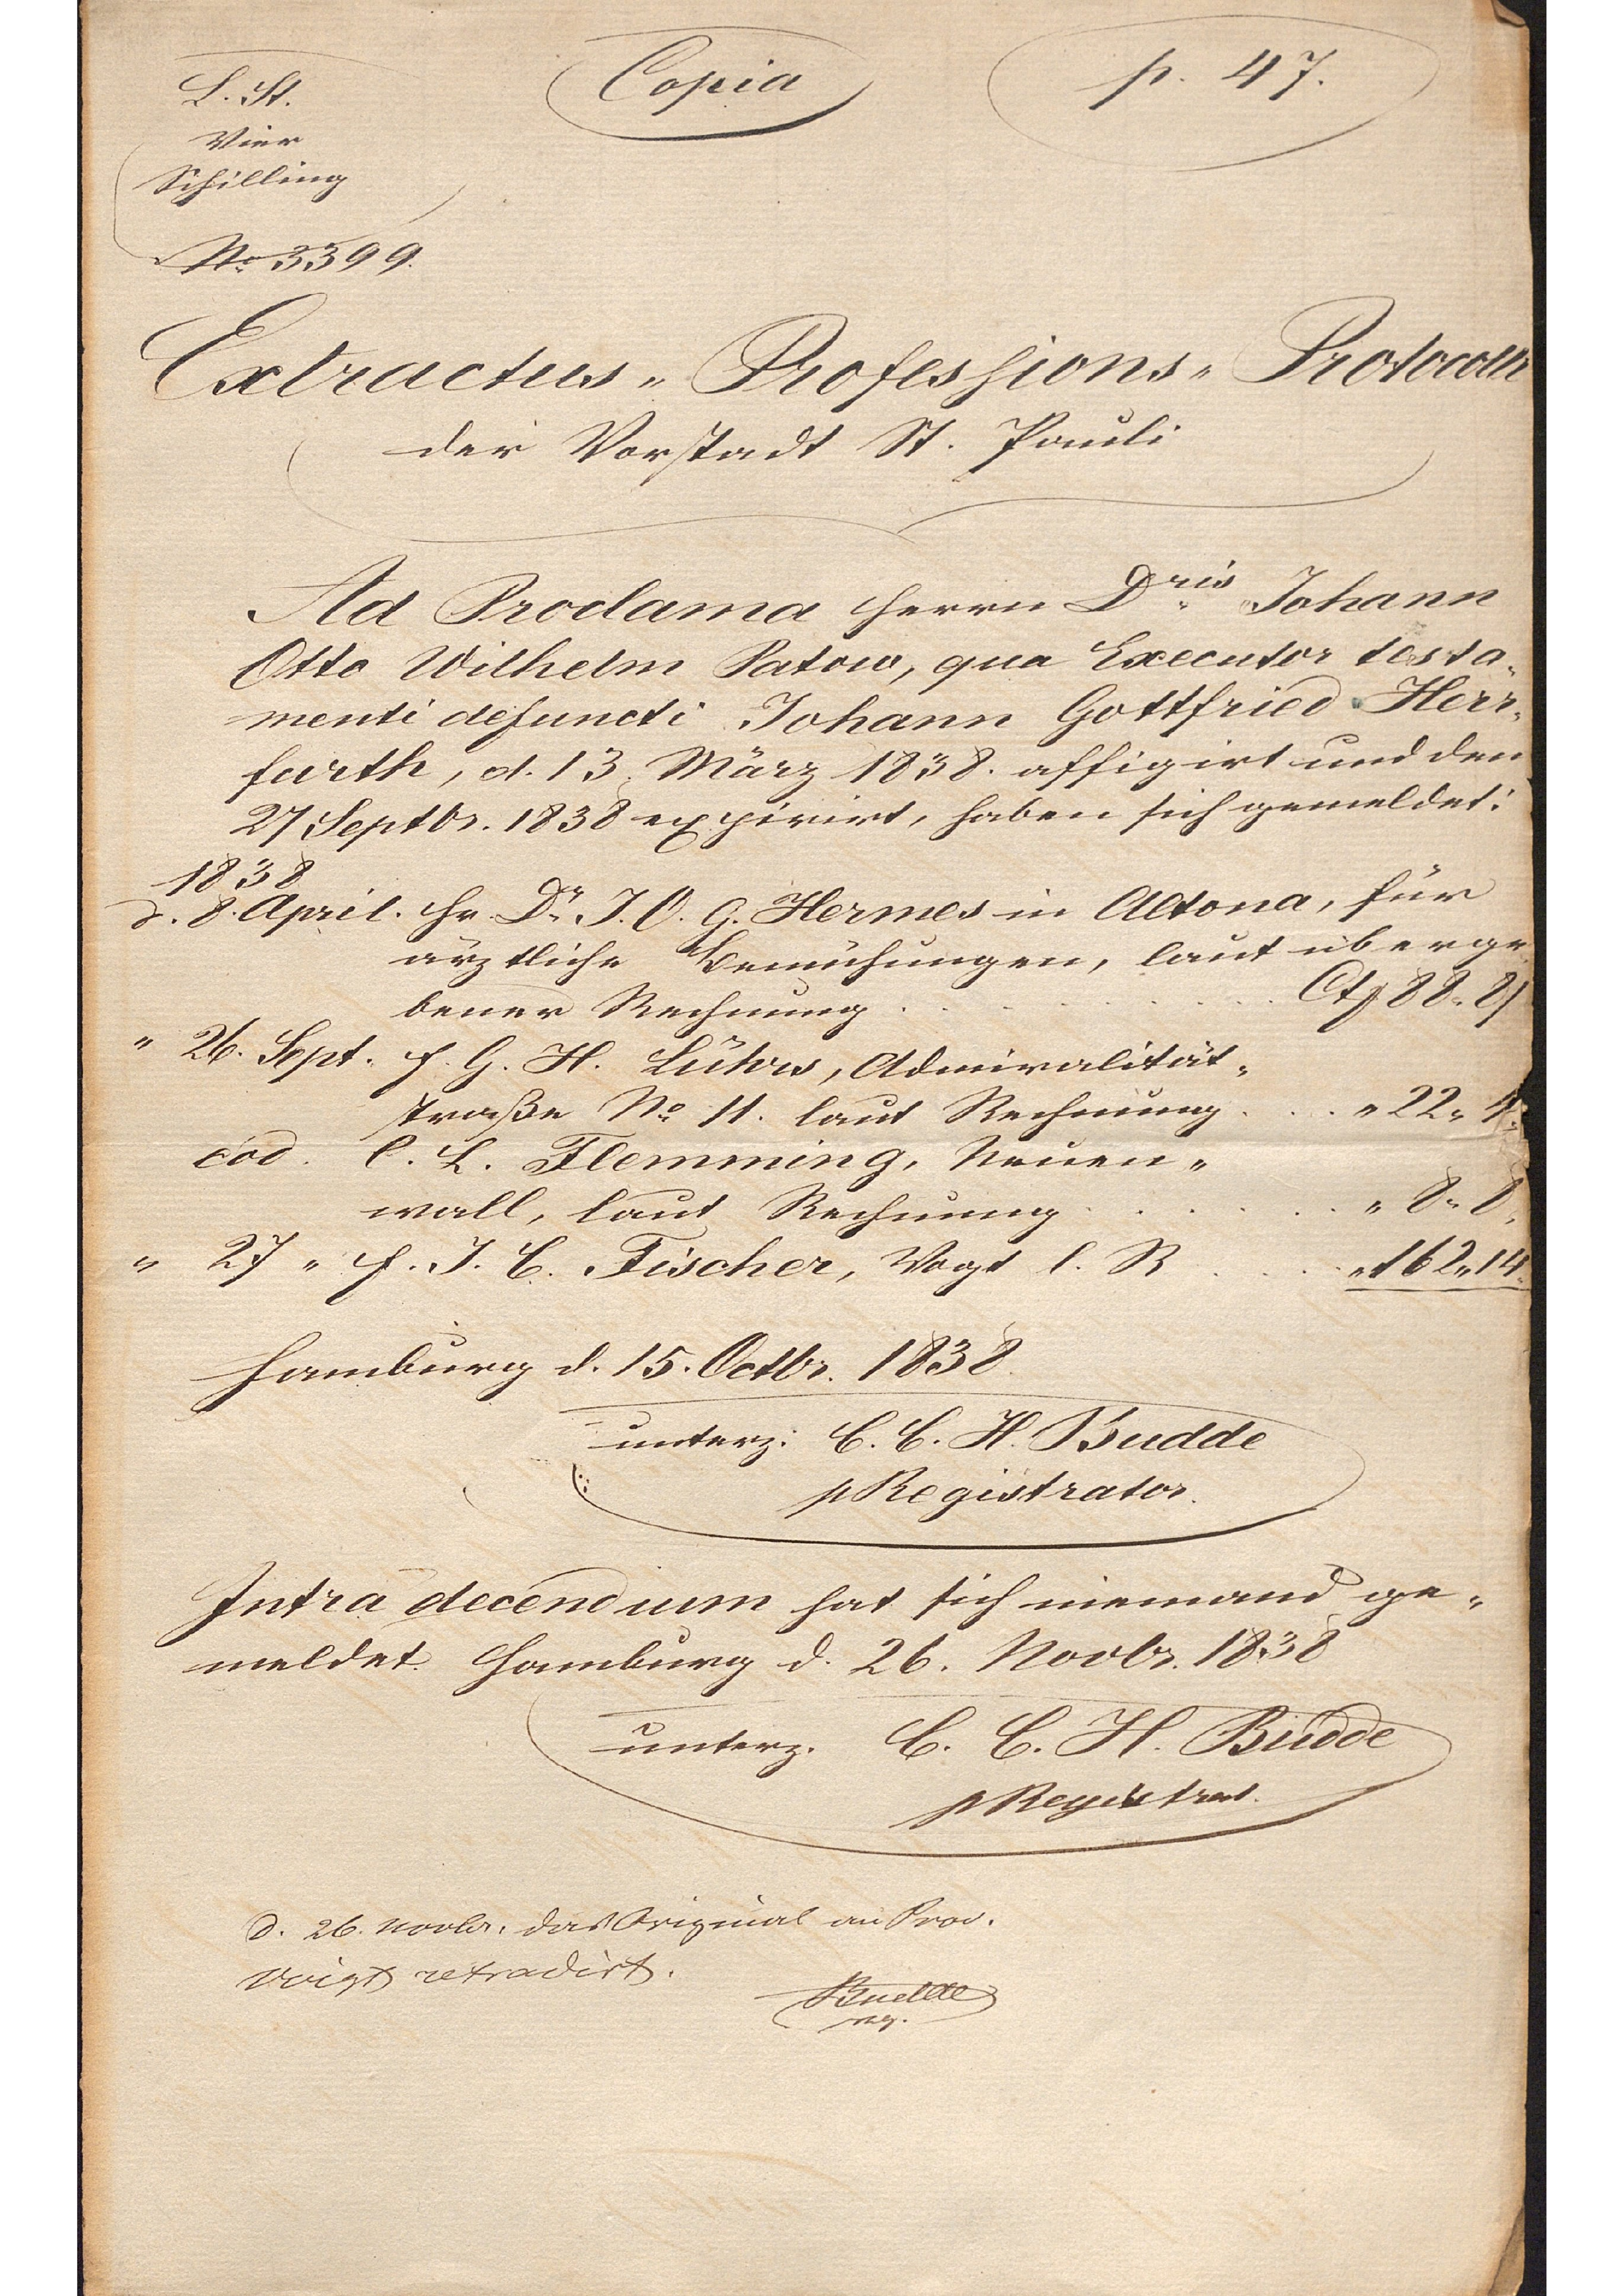 L. St.
Vier
Schilling
No 3399.
Copia
p. 47.
Extractus „ Professions „ Protocolli
der Vorstadt St. Pauli
Ad Proclama Herrn Dris Johann
Otto Wilhelm Patow, qua Executor testa„
menti defuncti Johann Gottfried Herr„
furth, d. 13. März 1838. affigirt und den
27 Septbr. 1838 expirirt, haben sich gemeldet:
1838
d. 8. April. Hr. Dr. J. O. G. Hermes in Altona, für
ärztliche Bemühungen, laut überge
bener Rechnung . . . . . . . . Ct 88„ 8
„ 26. Sept. H. G. H. Lührs, Admiralität„
straße No 11. laut Rechnung . . . „ 22„ 4.
eod. C. L. Flemming, Neuen„
wall, laut Rechnung . . . . . . „ 8„ 8.
„ 27 „ H. J. C. Fischer, Vogt l. R . . . . „ 162„ 14.
Hamburg d. 15. Octbr. 1838.
unterz: C. C. H. Budde
p Registrator.
Intra decendium hat sich niemand ge„
meldet. Hamburg d. 26. Novbr. 1838
unterz. C. C. H. Budde
p Registrat.
d. 26. Novbr. das Original an Proc.
Voigt retradirt.
Budde